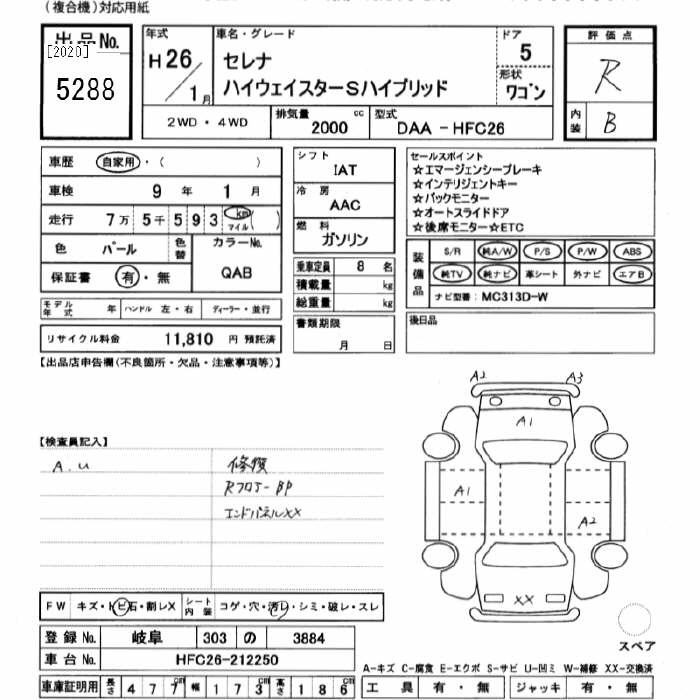 (複合機)対応用紙
出品No.
[2020]
5288
年式 H26/1月
車名・グレード
セレナ
ハイウェイスターSハイブリッド
ドア 5
形状 ワゴン
評価点 R
内装 B
2WD・4WD
排気量 2000 cc
型式 DAA-HFC26
車歴 自家用・( )
車検 9年 1月
走行 7万5千593 km マイル ( )
色 パール 色替 カラーNo. QAB
保証書 有・無
モデル年式 年 ハンドル 左・右 ディーラー・並行
リサイクル料金 11,810 円 預託済
シフト IAT
冷房 AAC
燃料 ガソリン
乗車定員 8 名
積載量 kg
総重量 kg
書類期限
月 日
セールスポイント
☆エマージェンシーブレーキ
☆インテリジェントキー
☆バックモニター
☆オートスライドドア
☆後席モニター☆ETC
装備品 S/R 純A/W P/S P/W ABS
純TV 純ナビ 革シート 外ナビ エアB
ナビ型番: MC313D-W
後日品
【出品店申告欄(不良箇所・欠品・注意事項等)】
【検査員記入】
A.U
修復
Rフロアー BP
エンドパネルXX
A2 A3
A1
A1
A2
XX
スペア
FW キズ・トビ石・割レX シート内装 コゲ・穴・汚レ・シミ・破レ・スレ
登録No. 岐阜 303 の 3884
車台No. HFC26-212250
車庫証明用 長さ 477cm 幅 173cm 高さ 186cm
A-キズ C-腐食 E-エクボ S-サビ U-凹ミ W-補修 XX-交換済
工具 有・無 ジャッキ 有・無